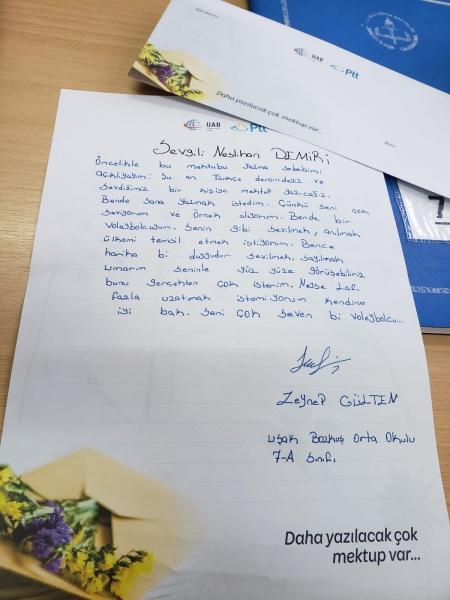 Gönderen:
UAB
Ptt
Daha yazılacak çok mektup var...
Alıcı:
UAB
Ptt
Sevgili Neslihan DEMİR;
Öncelikle bu mektubu yazma sebebimi
açıklıyayım: Şu an Türkçe dersindeyiz ve
sevdiğimiz bir kişiye mektup yazıcağız.
Bende sana yazmak istedim. Çünkü seni çok
seviyorum ve örnek alıyorum. Bende bir
voleybolcuyum. Senin gibi sevilmek, anılmak
ülkemi temsil etmek istiyorum. Bence
harika bi duygudur sevilmek, sayılmak
umarım seninle yüz yüze görüşebiliriz
bunu gerçekten çok isterim. Neyse Lafı
fazla uzatmak istemiyorum kendine
iyi bak. Seni çok seven bi voleybolcu...
Zeynep GÜLTEN
Uşak Bozkuş Orta Okulu
7-A Sınıfı
Daha yazılacak çok
mektup var...